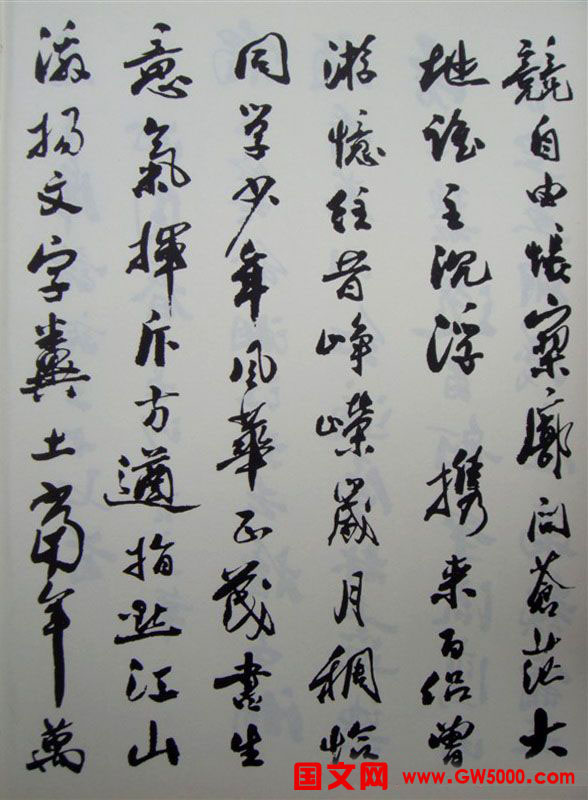 競自由悵寥廓问蒼茫大
地谁主沉浮 携来百侣曾
游憶往昔峥嵘歲月稠恰
同学少年风華正茂書生
意氣揮斥方遒指點江山
激揚文字糞土當年萬
国文网 www.GW5000.com